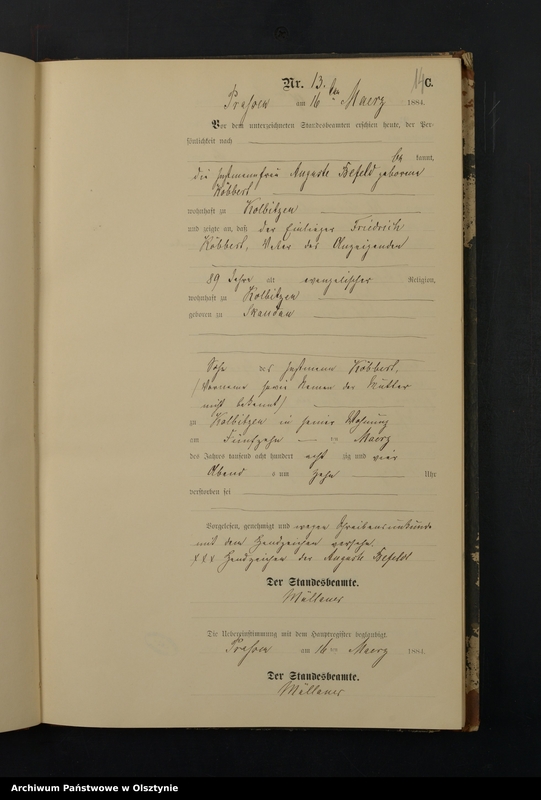 Nr. 13. 14 C.
am 16 ten Maerz 1884.
Vor dem unterzeichneten Standesbeamten erschien heute, der Per-
sönlichkeit nach
be kannt,
die Instmannsfrau Auguste Befeld geborene
Köbbert
wohnhaft zu Kolbitzen
und zeigte an, daß der Einlieger Friedrich
Köbbert, Vater des Anzeigenden
89 Jahre alt evangelischer Religion,
wohnhaft zu Kolbitzen
geboren zu Skandau
Sohn des Instmann Köbbert,
(Vorname sowie Namen der Mutter
nicht bekannt)
zu Kolbitzen in seiner Wohnung
am Fünfzehn ten Maerz
des Jahres tausend acht hundert acht zig und vier
Abend s um Zehn Uhr
verstorben sei
Vorgelesen, genehmigt und wegen Schreibensunkunde
mit dem Handzeichen versehn
xxx Handzeichen der Auguste Befeld
Der Standesbeamte.
Die Uebereinstimmung mit dem Hauptregister beglaubigt.
am 16 ten Maerz 1884.
Der Standesbeamte.
Archiwum Państwowe w Olsztynie